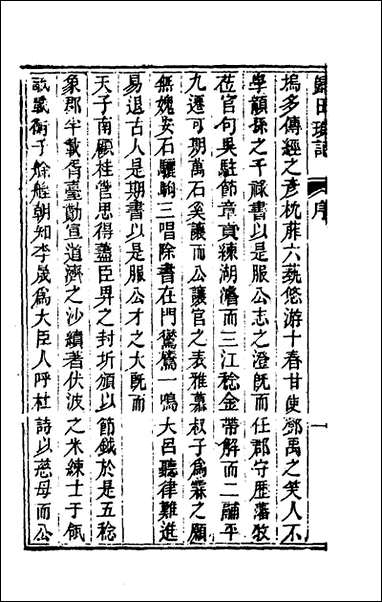 歸田瑣記 序 一
塢多傳經之彥枕葄六藝悠游十春甘使鄧禹之笑人不
學顓孫之干祿書以是服公志之澄旣而任郡守歷藩牧
莅官句吳駐節章貢練湖濬而三江稔金帶解而二鬴平
九遷可期萬石奚讓而公讓官之表雅慕叔子爲霖之願
無媿安石驪駒三唱除書在門鸑鷟一鳴大呂聽律難進
易退古人是期書以是服公才之大旣而
天子南顧桂管思得藎臣畀之封圻頒以節鉞於是五稔
象郡半載胥臺勛宣道濟之沙績著伏波之米練士于
衡于艅艎朝知李晟爲大臣人呼杜詩以慈母而公